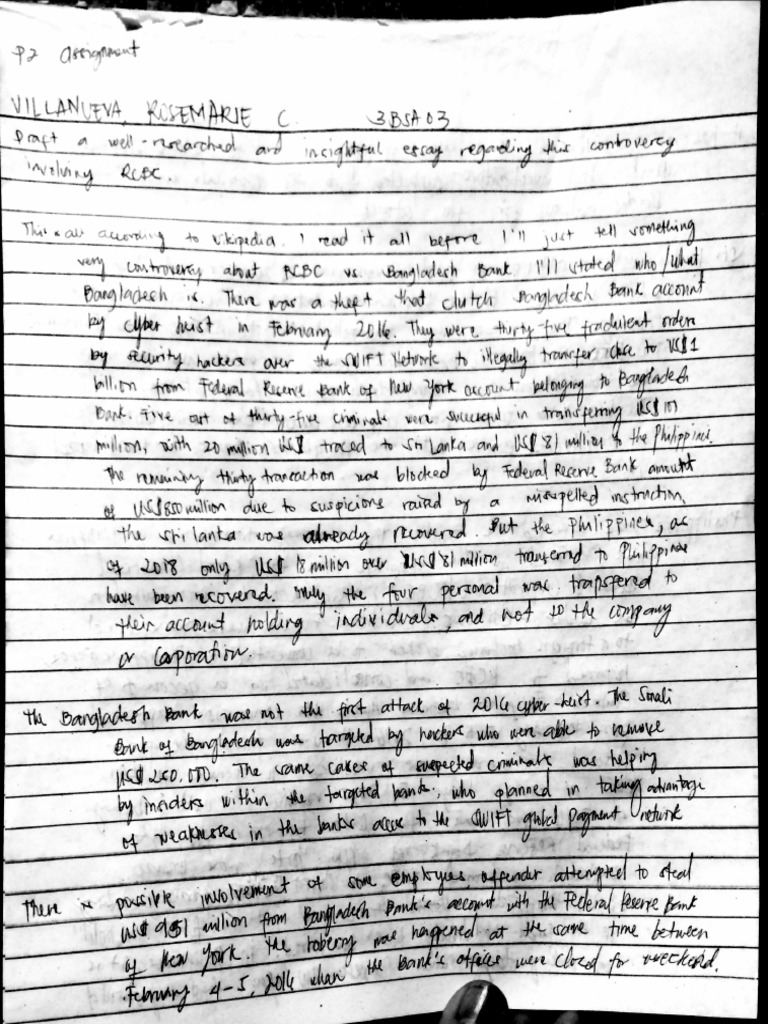 P2 assignment
VILLANUEVA, ROSEMARIE C. 3BSA03
Draft a well-researched and insightful essay regarding this controvercy
involving RCBC.
This all according to wikipedia. I read it all before I'll just tell something
very controvercy about RCBC vs. Bangladesh Bank. I'll stated who/what
Bangladesh is. There was a theft that clutch Bangladesh Bank account
by cyber heist in February 2016. They were thirty-five fradulent orders
by security hackers over the SWIFT Network to illegally transfer close to US$1
billion from Federal Reserve Bank of New York account belonging to Bangladesh
Bank. Five out of thirty-five criminals were successful in transferring US$ 101
million, with 20 million US$ traced to Sri Lanka and US$ 81 million to the Philippines.
The remaining thirty trancaction was blocked by Federal Reserve Bank amount
of US$850 million due to suspicions raised by a misspelled instruction,
the Sri lanka was already recovered. But the Philippines, as
of 2018 only US$ 18 million over US$ 81 million transferred to Philippines
have been recovered. Only the four personal was transfered to
their account holding individuals, and not to the company
or Corporation.
The Bangladesh Bank was not the first attack of 2016 cyber-heist. The Sonali
Bank of Bangladesh was targeted by hackers who were able to remove
US$ 250,000. The same cases of suspected criminals was helping
by insiders within the targeted banks, who planned in taking advantage
of weaknesses in the banks access to the SWIFT global payment network
There is possible involvement of some employees, offender attempted to steal
US$ 951 million from Bangladesh Bank's account with the Federal Reserve Bank
of New York. The robery was happened at the same time between
February 4-5, 2016 when the Bank's offices were closed for weekend.